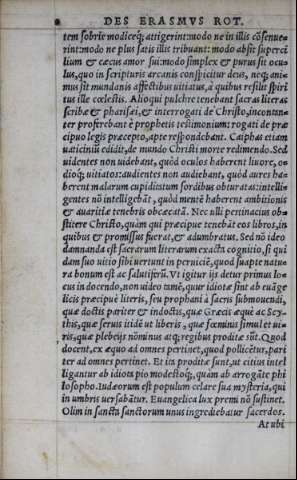 DES ERASMVS ROT.
tem sobrie modiceq́; attigerint: modo ne in illis cōsenue-
rint: modo ne plus satis illis tribuant: modo absit superci
lium & cæcus amor sui: modo simplex & purus sit ocu-
lus, quo in scripturis arcanis conspicitur deus, neq; ani-
mus sit mundanis affectibus uitiatus, à quibus resilit spiri
tus ille cœlestis. Alioqui pulchre tenebant sacras literas
scribæ & pharisæi, & interrogati de Christo, incontan-
ter proferebant è prophetis testimonium: rogati de præ
cipuo legis præcepto, apte respondebant. Caiphas etiam
uaticiniũ edidit, de mundo Christi morte redimendo. Sed
uidentes non uidebant, quòd oculos haberent liuore, o-
dioq́; uitiatos: audientes non audiebant, quòd aures ha-
berent malarum cupiditatum sordibus obturatas: intelli-
gentes nō intelligebāt, quòd mentē haberent ambitionis
& auaritiæ tenebris obcæcatā. Nec ulli pertinacius ob-
stitere Christo, quàm qui præcipue tenebāt eos libros, in
quibus & promissus fuerat, & adumbratus. Sed nō ideo
damnanda est sacrarum literarum exacta cognitio, si qui
dam suo uitio sibi uertunt in perniciē, quod suapte natu-
ra bonum est ac salutiferũ. Vt igitur ijs detur primus lo-
cus in docendo, non uideo tamē, quur idiotæ sint ab euāge
licis præcipue literis, seu prophani à sacris submouendi,
quæ doctis pariter & indoctis, quæ Græcis æquè ac Scy-
this, quæ seruis itidē ut liberis, quæ fœminis simul et ui-
ris, quæ plebeijs nō minus atq; regibus proditæ sũt. Quod
docent, ex æquo ad omnes pertinet, quod pollicētur, pari
ter ad omnes pertinet. Et ita proditæ sunt, ut citius intel
ligantur ab idiota pio modestoq́;, quàm ab arrogāte phi
losopho. Iudæorum est populum celare sua mysteria, qui
in umbris uersabātur. Euangelica lux premi nō sustinet.
Olim in sancta sanctorum unus ingrediebatur sacerdos.
At ubi